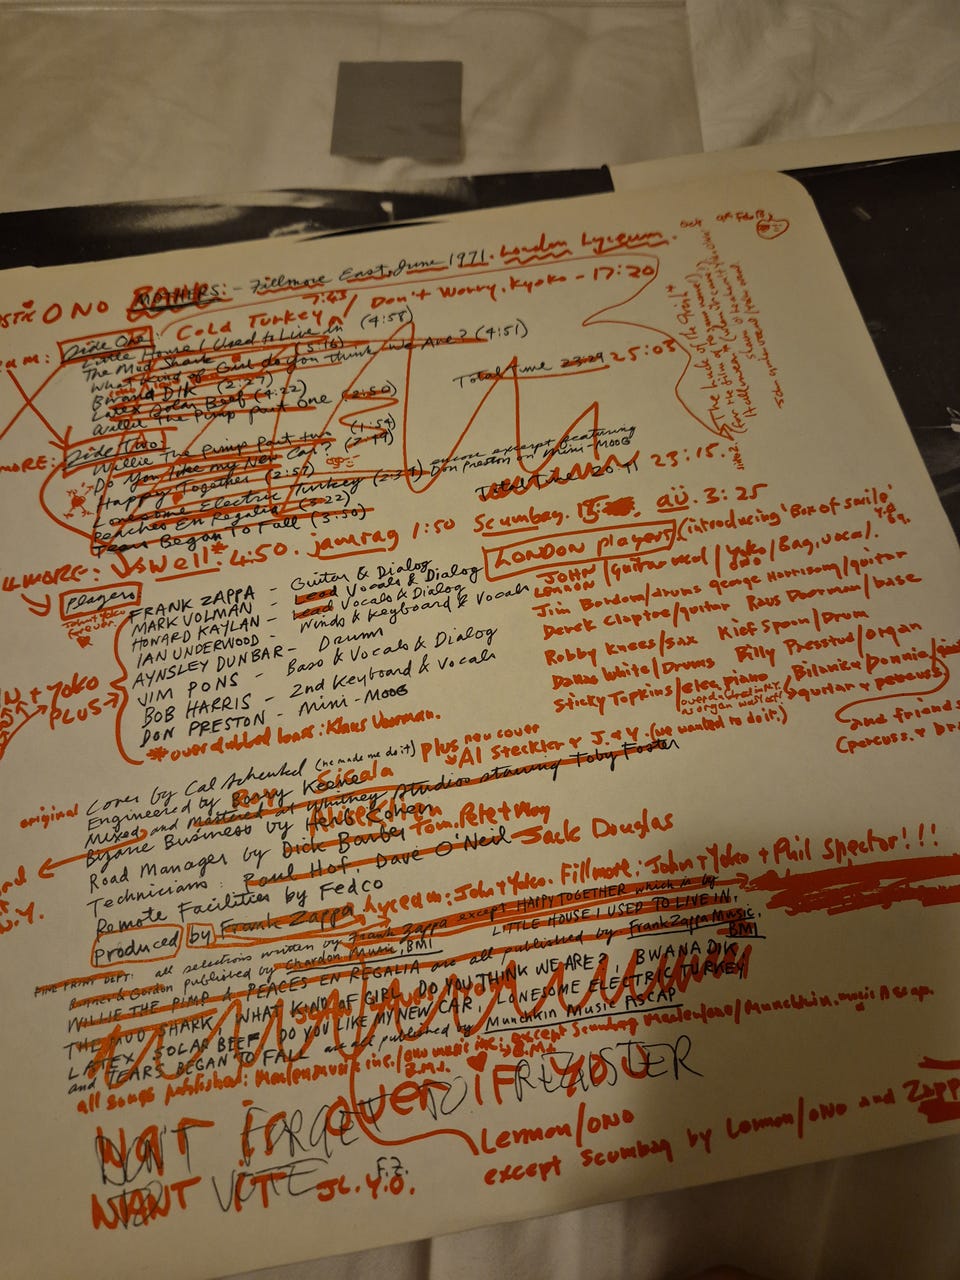 ONO BAND
MOTHERS: - Fillmore East, June 1971. London Lyceum.
7:43
Cold Turkey / Don't Worry, Kyoko - 17:20
Side One:
Little House I Used to Live in (4:58)
The Mud Shark (5:16)
What Kind of Girl do you think we Are? (4:51)
Bwana DIK (2:27)
Latex Solar Beef (4:22)
Willie The Pimp Part One (2:50)
Total Time 23:29 25:03
Side Two:
Willie The Pimp Part two (1:54)
Do You Like my New Car?
Happy Together (2:57)
Lonesome Electric Turkey encore excerpt featuring Don Preston on Mini-MOOG
Peaches En Regalia (3:22)
Tears Began To Fall (3:50)
Total Time 20:11 23:15.
Well* 4:50. jamrag 1:50 Scumbag. aü. 3:25
players
John + Yoko forever.
FRANK ZAPPA - Guitar & Dialog
MARK VOLMAN - Lead Vocals & Dialog
HOWARD KAYLAN - Lead Vocals & Dialog
IAN UNDERWOOD - Winds & Keyboard & Vocals
AYNSLEY DUNBAR - Drums
JIM PONS - Bass & Vocals & Dialog
BOB HARRIS - 2nd Keyboard & Vocals
DON PRESTON - Mini-MOOG
+ Yoko
PLUS
*overdubbed bass: Klaus Voorman.
LONDON players (introducing 'Box of smile' Y.O.
JOHN LENNON / guitar vocal / Yoko ONO / Bag, vocal.
Jim Bordom/drums george Harrisong/guitar
Derek Claptoe/guitar Raus Doorman/base
Robby Knees/sax Kief Spoon/Drum
Dallas White/Drums Billy Presstud/organ
Sticky Topkins/elec. piano
Bilanie & Donnie/
guitar & percuss
and friends
(percuss. +
original
Cover by Cal Schenkel (he made me do it) plus new cover
Al Steckler + J. + Y. (we wanted to do it.)
Engineered by Barry Keene
Mixed and Mastered at Whitney Studios starring Toby Foster
Bizarre Business by Herb Cohen
Road Manager by Dick Barber Tom, Pete + May
Technicians: Paul Hof, Dave O'Neil Jack Douglas
Remote Facilities by Fedco
Produced by Frank Zappa Lyceum: John + Yoko. Fillmore: John + Yoko + Phil Spector!!!
FINE PRINT DEPT: all selections written by Frank Zappa except HAPPY TOGETHER which is by
Bonner & Gordon published by Chardon Music, BMI LITTLE HOUSE I USED TO LIVE IN,
WILLIE THE PIMP & PEACES EN REGALIA are all published by Frank Zappa Music, BMI
THE MUD SHARK, WHAT KIND OF GIRL DO YOU THINK WE ARE?, BWANA DIK
LATEX SOLAR BEEF, DO YOU LIKE MY NEW CAR, LONESOME ELECTRIC TURKEY
and TEARS BEGAN TO FALL are all published by Munchkin Music ASCAP
all songs published: Maclen music inc./ono music inc. except Scumbag Maclen/ono/Munchkin.music Ascap.
B.M.I.
WAR is over if you
WANT IT JL. Y.O.
DON'T FORGET TO REGISTER
TO VOTE F.Z.
Lennon/ONO
except Scumbag by Lennon/ONO and Zapp